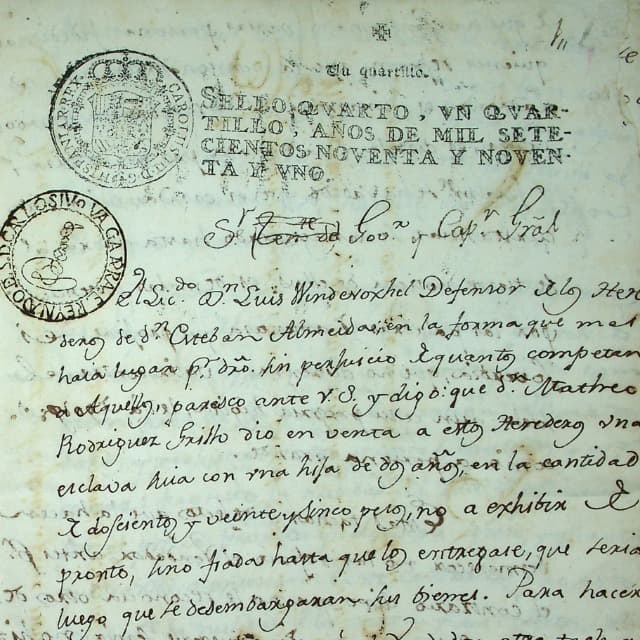 Un quartillo.
SELLO QVARTO, VN QVAR-
TILLO, AÑOS DE MIL SETE-
CIENTOS NOVENTA Y NOVEN-
TA Y VNO.
CAROLVS IV D G HISPANIAR REX
S.r Gov.r y Cap.n Gral
El Lic.do D.n Luis Defensor de los Here
deros de d.n Esteban Almeida en la forma que mas
haia lugar p.r dro. sin perjuicio de quantos competan
a Aquellos, paresco ante V.S. y digo: que d.n Matheo
Rodriguez Grillo dio en venta a estos Herederos una
esclava suia con una hija de dos años, en la cantidad
de doscientos y veinte y sinco pesos, no a exhibir de
pronto, sino fiada hasta que los entregase, que seria
luego que se desembargaran sus bienes. Para hacer